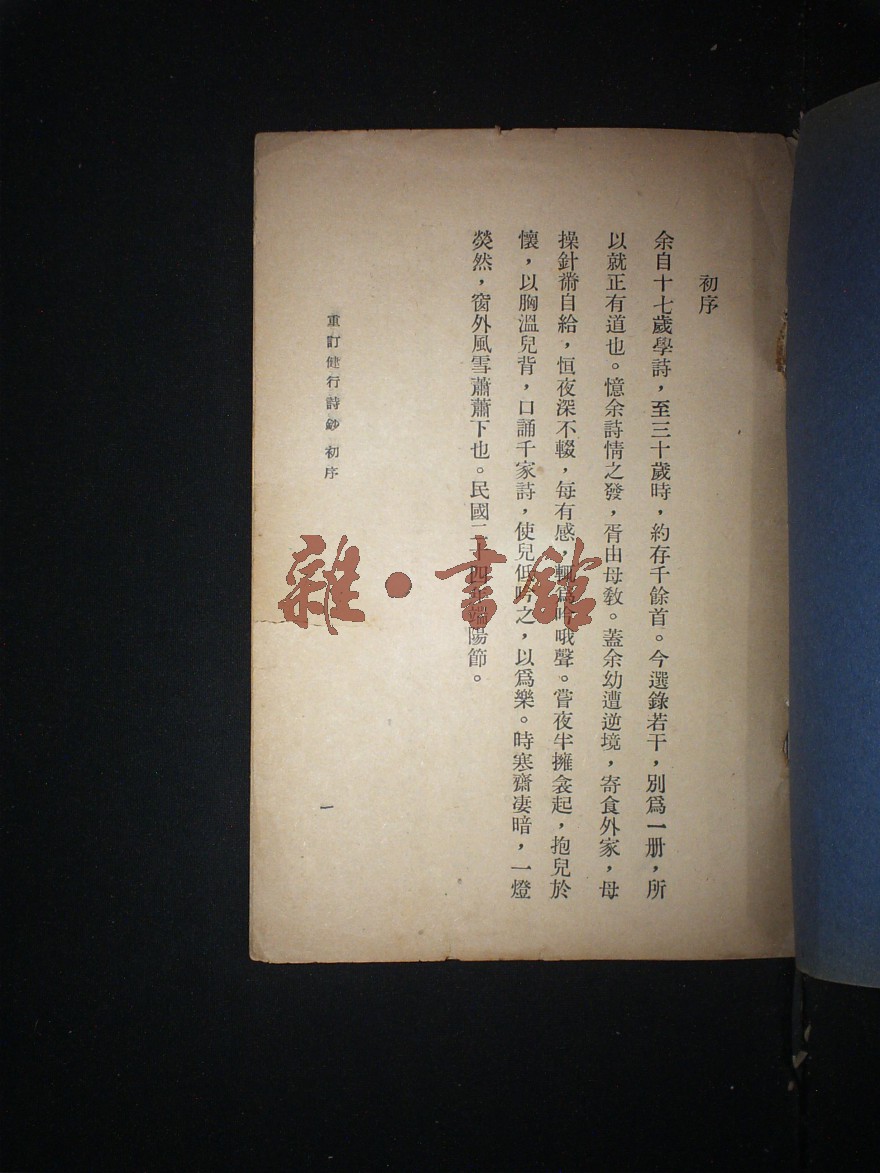 初序
余自十七歲學詩，至三十歲時，約存千餘首。今選錄若干，別爲一册，所
以就正有道也。憶余詩情之發，胥由母教。蓋余幼遭逆境，寄食外家，母
操針黹自給，恒夜深不輟，每有感，輒爲吟哦聲。嘗夜半擁衾起，抱兒於
懷，以胸溫兒背，口誦千家詩，使兒低吟之，以爲樂。時寒齋凄暗，一燈
熒然，窗外風雪蕭蕭下也。民國二十四年端陽節。
重訂健行詩鈔 初序
一
雜·書館